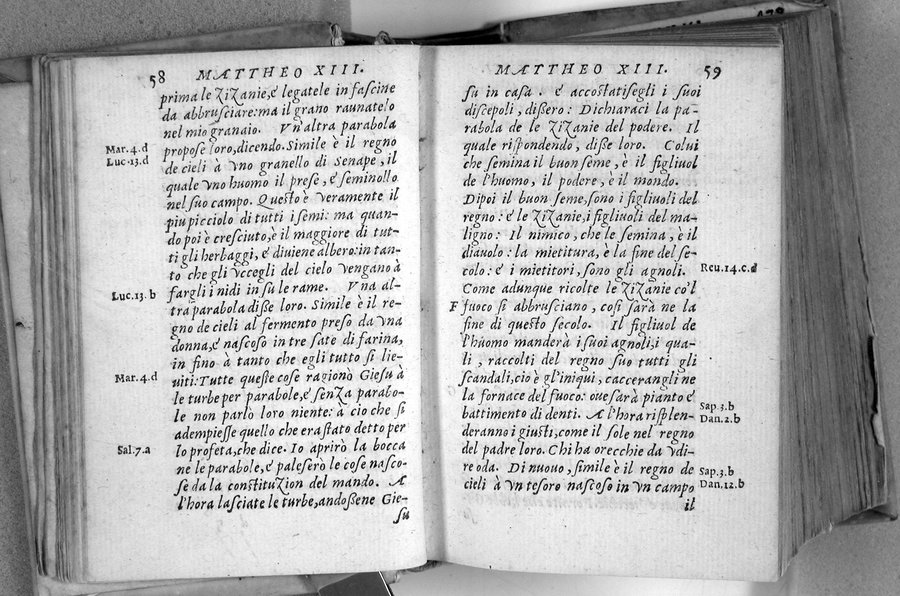 58 MATTHEO XIII.
prima le ZiZanie,e legatele in fascine
da abbrusciare: ma il grano raunatelo
nel mio granaio. Vn'altra parabola
Mar.4.d
propose loro,dicendo. Simile è il regno
Luc.13.d
de cieli à vno granello di Senape, il
quale vno huomo il prese, e seminollo
nel suo campo. Questo è veramente il
piu picciolo di tutti i semi: ma quan-
do poi è cresciuto,è il maggiore di tut-
ti gli herbaggi, e diuiene albero: in tan-
to che gli vccegli del cielo vengano à
Luc.13.b
fargli i nidi in su le rame. Vna al-
tra parabola disse loro. Simile è il re-
gno de cieli al fermento preso da vna
donna,e nascoso in tre sate di farina,
in fino à tanto che egli tutto si lie-
Mar.4.d
uiti: Tutte queste cose ragionò Giesu à
le turbe per parabole,e senZa parabo-
le non parlo loro niente: à cio che si
adempiesse quello che era stato detto per
Sal.7.a
lo profeta,che dice. Io aprirò la bocca
ne le parabole,e paleserò le cose nasco-
se da la constituZion del mando. A
l'hora lasciate le turbe,andossene Gie-
su
MATTHEO XIII. 59
su in casa. e accostatisegli i suoi
discepoli, dissero: Dichiaraci la pa-
rabola de le ZiZanie del podere. Il
quale rispondendo, disse loro. Colui
che semina il buon seme, è il figliuol
de l'huomo, il podere, è il mondo.
Dipoi il buon seme,sono i figliuoli del
regno: e le ZiZanie,i figliuoli del ma-
ligno: Il nimico, che le semina, è il
diauolo: la mietitura, è la fine del se-
colo: e i mietitori, sono gli agnoli.
Reu.14.c.d
Come adunque ricolte le ZiZanie co'l
F fuoco si abbrusciano, cosi sarà ne la
fine di questo secolo. Il figliuol de
l'huomo manderà i suoi agnoli,i qua-
li, raccolti del regno suo tutti gli
scandali,cio è gl'iniqui, caccerangli ne
la fornace del fuoco: oue sarà pianto e
Sap.3.b
battimento di denti. A l'hora risplen-
Dan.2.b
deranno i giusti,come il sole nel regno
del padre loro. Chi ha orecchie da vdi-
re oda. Di nuouo, simile è il regno de
Sap.3.b
cieli à vn tesoro nascoso in vn campo
Dan.12.b
il